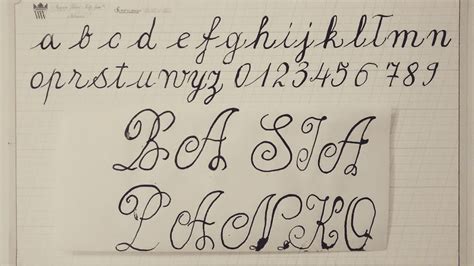 a b c d e f g h i j k l ł m n
o p r s t u w y z 0 1 2 3 4 5 6 7 8 9
BA SIA
PANKO